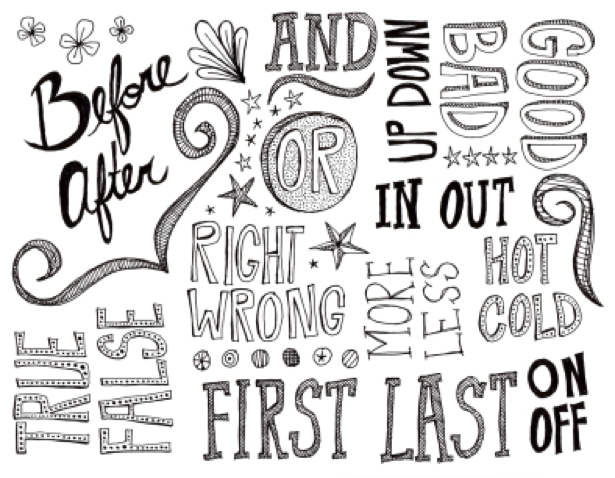 Before
After
AND
OR
UP DOWN
BAD
GOOD
IN OUT
RIGHT
WRONG
MORE
LESS
HOT
COLD
TRUE
FALSE
FIRST LAST
ON
OFF